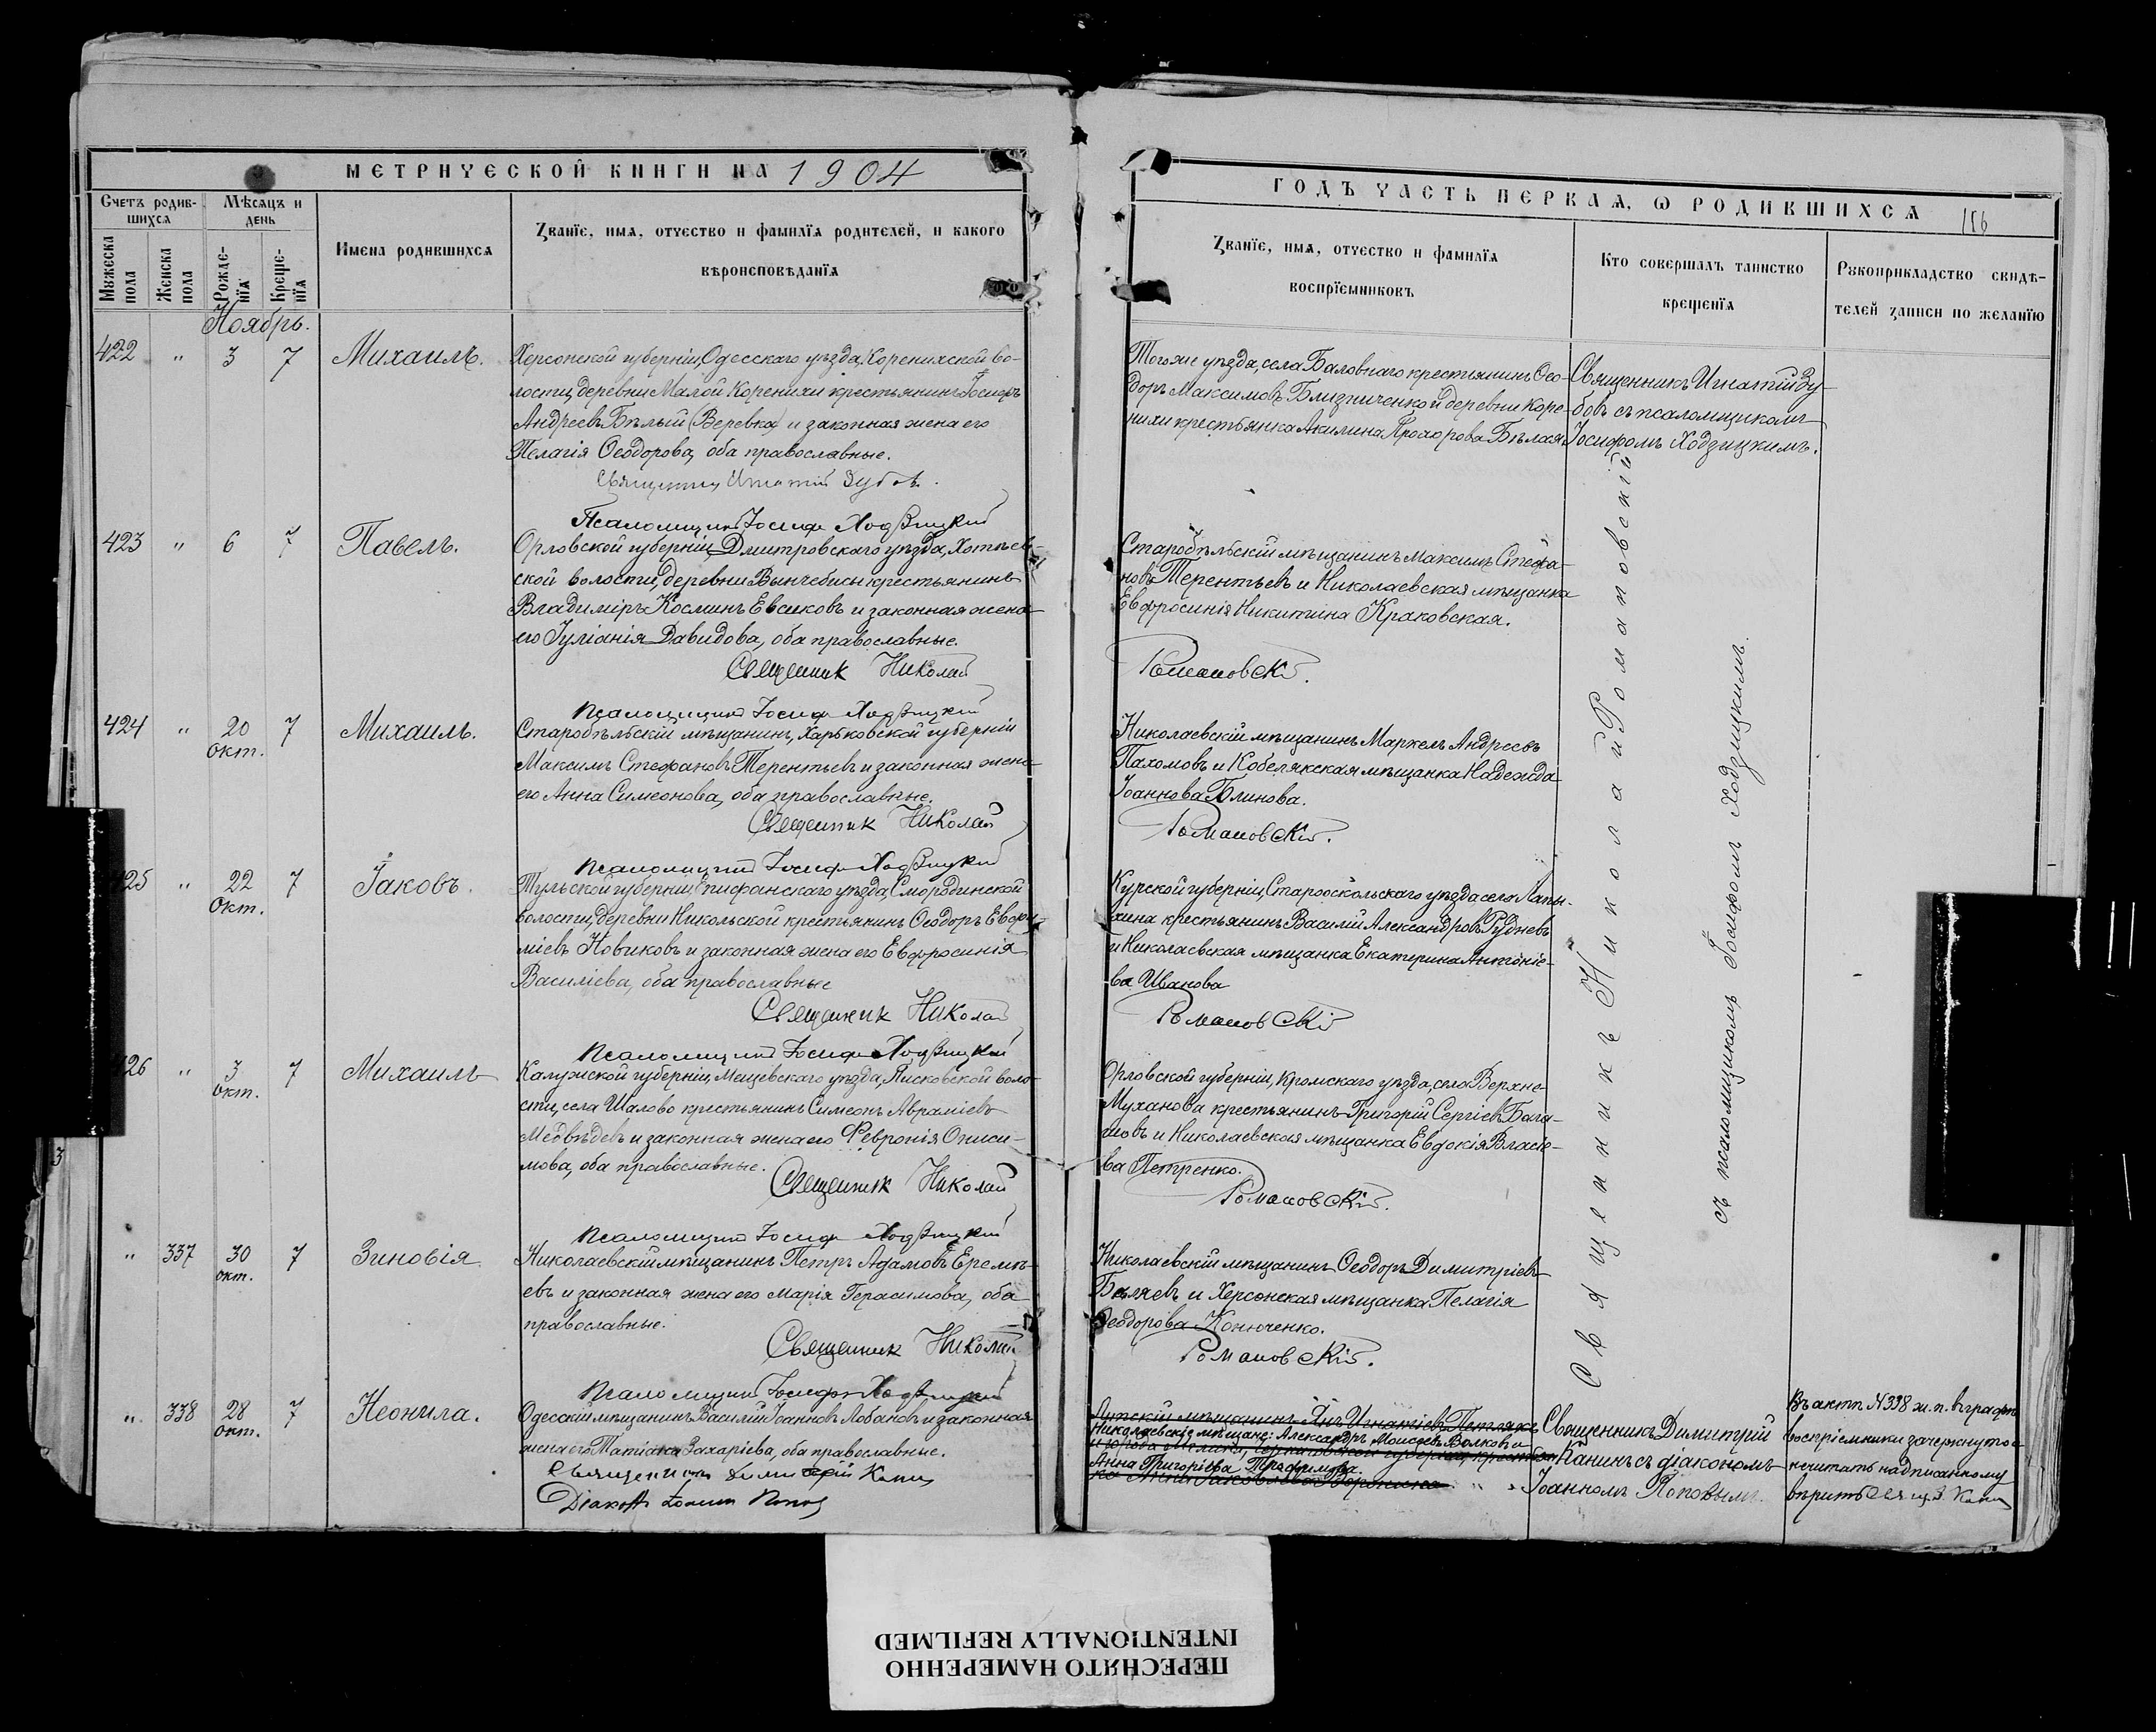 МЕТРИЧЕСКОЙ КНИГИ НА 1904
Счетъ родив-
шихся
Мѣсяцъ и
день
Мужеска
пола
Женска
пола
Рожде-
нїя
Креще-
нїя
Имена родившихся
Званїе, имя, отчество и фамилїя родителей, и какого
вѣроисповѣданїя
Ноябрь.
422 " 3 7 Михаилъ.
Херсонской губерніи, Одесскаго уѣзда, Коренихской во-
лости, деревни Малой Коренихи крестьянинъ Іосифъ
Андреевъ Бѣлый (Веревка) и законная жена его
Пелагія Ѳеодорова, оба православные.
Священникъ Игнатій Зубовъ.
Псаломщикъ Іосифъ Ходзицкій
423 " 6 7 Павелъ.
Орловской губерніи, Дмитровскаго уѣзда, Хотьев-
ской волости, деревни крестьянинъ
Владиміръ Косминъ Евсиковъ и законная жена
его Іуліанія Давидова, оба православные.
Священник Николай
Псаломщикъ Іосифъ Ходзицкій
424 " 20 окт. 7 Михаилъ.
Старобѣльскій мѣщанинъ, Харьковской губерніи
Максимъ Стефановъ Терентьевъ и законная жена
его Анна Симеонова, оба православные.
Священник Николай
Псаломщикъ Іосифъ Ходзицкій
425 " 22 Окт. 7 Іаковъ.
Тульской губерніи Епифанскаго уѣзда, Смородинской
волости, деревни Никольской крестьянинъ Ѳеодоръ Евфи-
міевъ Новиковъ и законная жена его Евфросинія
Василіева, оба православные
Священник Николай
Псаломщикъ Іосифъ Ходзицкій
426 " 3 окт. 7 Михаилъ
Калужской губерніи, Мещевскаго уѣзда, воло-
сти, села Шалово крестьянинъ Симеонъ Авраміевъ
Медвѣдевъ и законная жена его Февронія Ониси-
мова, оба православные.
Священник Николай
Псаломщикъ Іосифъ Ходзицкій
" 337 30 окт. 7 Зиновія.
Николаевскій мѣщанинъ Петръ Адамовъ Еремѣ-
евъ и законная жена его Марія Герасимова, оба
православные.
Священник Николай
Псаломщикъ Іосифъ Ходзицкій
" 338 28 окт. 7 Неонила.
Одесскій мѣщанинъ Василій Іоанновъ Лобановъ и законная
жена его Татіана Захаріева, оба православные.
Священникъ Димитрій Канинъ
Діаконъ Іоаннъ Поповъ
ГОДЪ ЧАСТЬ ПЕРВАЯ, Ѡ РОДИВШИХСЯ
Званїе, имя, отчество и фамилїя
воспрїемниковъ
Кто совершалъ таинство
крещенїя
Рукоприкладство свидѣ-
телей записи по желанїю
Тогоже уѣзда, села Баловнаго крестьянинъ Ѳео-
доръ Максимовъ Близниченко и деревни Коре-
нихи крестьянка Акилина Прохорова Бѣлая
Священникъ Игнатій Зу-
бовъ съ псаломщикомъ
Іосифомъ Ходзицкимъ.
Старобѣльскій мѣщанинъ Максимъ Стефа-
новъ Терентьевъ и Николаевская мѣщанка
Евфросинія Никитина Краковская.
Романовскій.
Николаевскій мѣщанинъ Маркелъ Андреевъ
Пахомовъ и Кобелякская мѣщанка Надежда
Іоаннова Блинова.
Романовскій.
Курской губерніи, Старооскольскаго уѣзда, село Лапы-
хина крестьянинъ Василій Александровъ Рудневъ
и Николаевская мѣщанка Екатерина Антоніе-
ва Иванова
Романовскій
Орловской губерніи, Кромскаго уѣзда, села Верхне-
Муханова крестьянинъ Григорій Сергіевъ
и Николаевская мѣщанка Евдокія Власіе-
ва Петренко.
Романовскій.
Николаевскій мѣщанинъ Ѳеодоръ Димитріевъ
Бѣляевъ и Херсонская мѣщанка Пелагія
Ѳеодорова Конюченко.
Романовскій.
Священникъ Николай Романовскій
съ псаломщикомъ Іосифомъ Ходзицкимъ.
Николаевскіе мѣщане: Александръ Моисеевъ Волковъ и
Анна Григоріева Трофимова.
Священникъ Димитрій
Канинъ съ діакономъ
Іоанномъ Поповымъ.
Въ актѣ №338 ж. п. въ графѣ
воспріемники зачеркнутое
нечитать надписанному
вѣрить Свящ. Д. Канинъ
ПЕРЕСНЯТО НАМЕРЕННО
INTENTIONALLY REFILMED